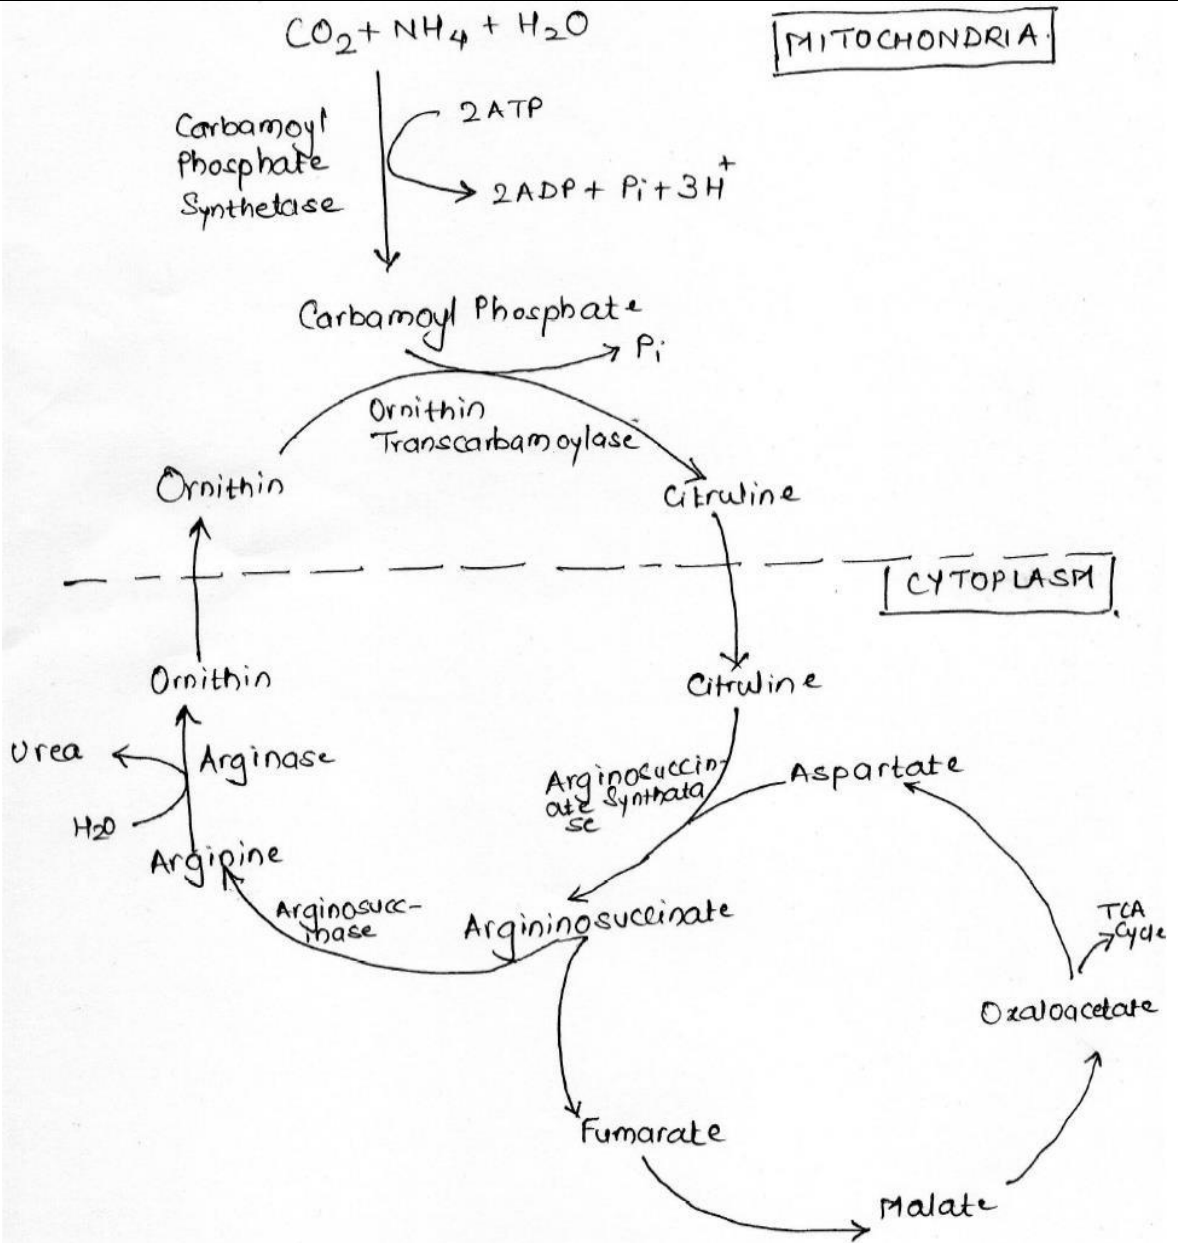 CO2 + NH4 + H2O
MITOCHONDRIA
Carbamoyl
Phosphate
Synthetase
2ATP
2ADP + Pi + 3H+
Carbamoyl Phosphate
Pi
Ornithin
Transcarbamoylase
Ornithin
Citruline
CYTOPLASM
Ornithin
Citruline
Urea
Arginase
H2O
Arginine
Arginosuccin-
ate Synthata
se
Aspartate
Arginosucc-
inase
Argininosuccinate
TCA
Cycle
Oxaloacetate
Fumarate
Malate